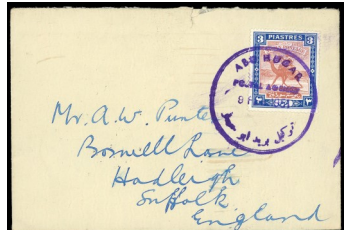 3 PIASTRES 3
ABU HUGAR
POSTAL AGENCY
Mr. A. W.
Boswell Lane
Hadleigh
Suffolk
England